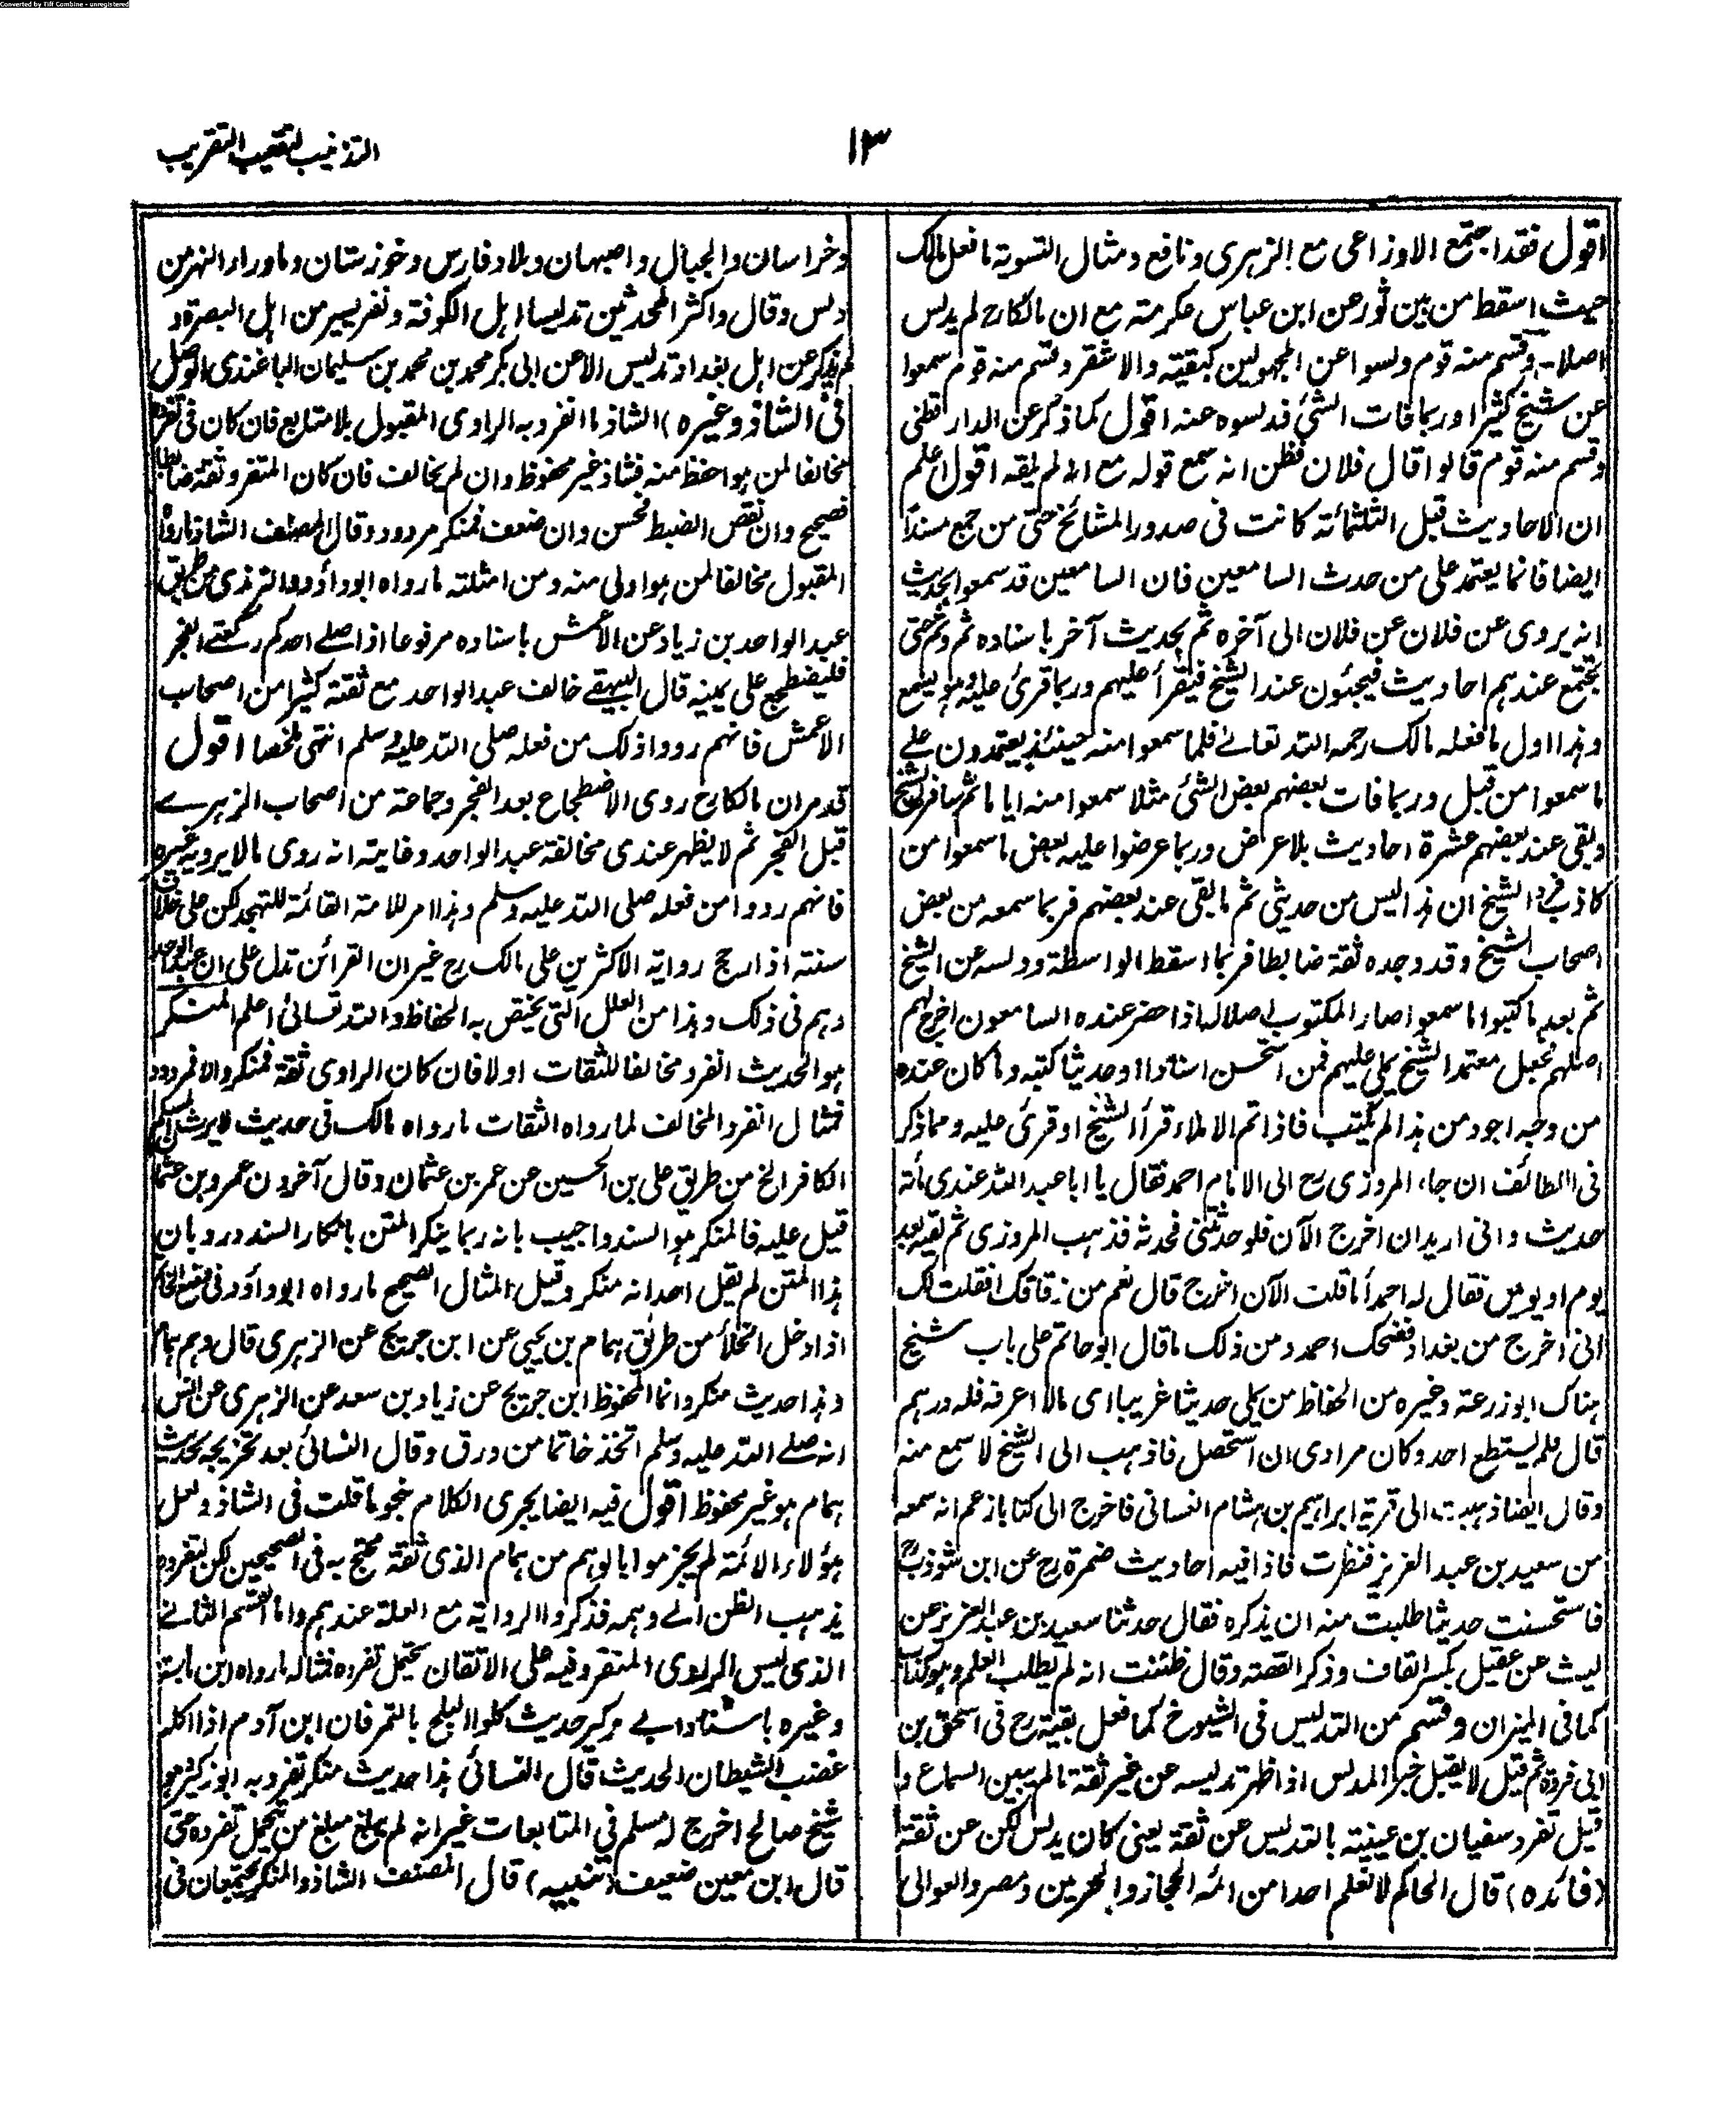 Converted by Tiff Combine - unregistered
التذنيب لتعقيب التقريب
١٣
اقول فقد اجتمع الاوزاعى مع الزهرى ونافع ومثال التسوية ما فعل مالك
حيث اسقط من بين ثور عن ابن عباس عكرمته مع ان مالكا رح لم يدلس
اصلا وقسم منه قوم دلسوا عن المجهولين كبقيته والاشقر وقسم منه قوم سمعوا
عن شيخ كثيرا وربما فات الشئ فدلسوه عنه اقول كما ذكر عن الدار قطنى
وقسم منه قوم قالوا قال فلان فظن انه سمع قوله مع انه لم يلقه اقول اعلم
ان الاحاديث قبل الثلثمائة كانت فى صدور المشائخ حتى من جمع مسندا
ايضا فانما يعتمد على من حدث السامعين فان السامعين قد سمعوا الحديث
انه يروى عن فلان عن فلان الى آخره ثم بحديث آخر باسناده ثم وثم حتى
تجتمع عندهم احاديث فيجيئون عند الشيخ فيقرأ عليهم وربما قرئ عليه وهو يسمع
وهذا اول ما فعله مالك رحمه الله تعالے فلما سمعوا منه حينئذ يعتمدون علے
ما سمعوا من قبل وربما فات بعضهم بعض الشئ مثلا سمعوا منه اياما ثم سافر الشيخ
وبقى عند بعضهم عشرة احاديث بلا عرض وربما عرضوا عليه بعض ما سمعوا من
كاذب فرد الشيخ ان هذا ليس من حديثى ثم ما بقى عند بعضهم فربما سمعه من بعض
اصحاب الشيخ وقد وجده ثقة ضابطا فربما اسقط الواسطة ودلسه عن الشيخ
ثم بعد ما كتبوا ما سمعوا صار المكتوب اصلا لهم اذا حضر عنده السامعون اخرج لهم
اصلهم فجعل معتمد الشيخ يملى عليهم فمن استحسن اسنادا او حديثا كتبه وما كان عنده
من وجه اجود من هذا لم يكتب فاذا تم الاملاء قرأ الشيخ او قرئ عليه ومما ذكر
فى اللطائف ان جاء المروزى رح الى الامام احمد فقال يا ابا عبد الله عندى مأته
حديث وانى اريد ان اخرج الآن فلو حدثتنى فحدثه فذهب المروزى ثم لقيه بعد
يوم او يومين فقال له احمد أما قلت الآن اخرج قال نعم من زقاقك افقلت لك
انى اخرج من بغداد فضحك احمد ومن ذلك ما قال ابو حاتم على باب شيخ
هناك ابو زرعته وغيره من الحفاظ من يملى حديثا غريبا اى مالا اعرفه فله درهم
قال فلم يستطع احد وكان مرادى ان استحصل فاذهب الى الشيخ لاسمع منه
وقال ايضا ذهبت الى قرية ابراهيم بن هشام الغسانى فاخرج الى كتابا زعم انه سمعه
من سعيد بن عبد العزيز فنظرت فاذا فيه احاديث ضمرة رح عن ابن شوذب رح
فاستحسنت حديثا طلبت منه ان يذكره فقال حدثنا سعيد بن عبد العزيز عن
ليث عن عقيل بكسر القاف وذكر القصته وقال ظننت انه لم يطلب العلم وهو كذاب
كما فى الميزان وقسم من التدليس فى الشيوخ كما فعل بقيته رح فى اسحق بن
ابى فروة ثم قيل لا يقبل خبر المدلس اذا ظهر تدليسه عن غير ثقة ما لم يبين السماع و
قيل تفرد سفيان بن عيينة بالتدليس عن ثقة يعنى كان يدلس لكن عن ثقة
(فائده) قال الحاكم لا نعلم احدا من ائمه الحجاز والحرمين ومصر والعوالى
وخراسان والجبال واصبهان وبلاد فارس وخوزستان وماوراء النهر من
دلس وقال واكثر المحدثين تدليسا اهل الكوفة ونفر يسير من اهل البصرة و
لم يذكر عن اهل بغداد تدليس الا عن ابى بكر محمد بن محمد بن سليمان الباغندى الوصل
فى الشاذ وغيره) الشاذ ما انفرد به الراوى المقبول بلا متابع فان كان فى تفرده
مخالفا لمن هو احفظ منه فشاذ غير محفوظ وان لم يخالف فان كان المتفرد ثقته ضابطا
فصحيح وان نقص الضبط فحسن وان ضعف فمنكر مردود وقال المصنف الشاذ ما رواه
المقبول مخالفا لمن هو اولى منه ومن امثلته ما رواه ابوداؤد والترمذى من طريق
عبد الواحد بن زياد عن الاعمش باسناده مرفوعا اذا صلے احدكم ركعتے الفجر
فليضطجع على يمينه قال البيهقے خالف عبد الواحد مع ثقته كثيرا من اصحاب
الاعمش فانهم رووا ذلك من فعله صلى الله عليه وسلم انتهى ملخصا اقول
قد مر ان مالكا رح روى الاضطجاع بعد الفجر وجماعة من اصحاب الزهرے
قبل الفجر ثم لا يظهر عندى مخالفة عبد الواحد وغايته انه روى مالا يرويه غيره
فانهم رووا من فعله صلى الله عليه وسلم وهذا امر للامته القائمة للتهجد لكن على خلاف
سنته اذا رجح رواية الاكثرين على مالك رح غير ان القرائن تدل على ان عبد الواحد
وهم فى ذلك وهذا من العلل التى يختص به الحفاظ والله تعالى اعلم المنكر
هو الحديث انفرد مخالفا للثقات او لا فان كان الراوى ثقة فمنكر والا فمردود
فمثال انفرد المخالف لما رواه الثقات ما رواه مالك فى حديث لا يرث المسلم
الكافر الخ من طريق على بن الحسين عن عمر بن عثمان وقال آخرون عمرو بن عثمان
قيل عليه فالمنكر هو السند واجيب بانه ربما ينكر المتن بانكار السند ورد بان
هذا المتن لم يقل احد انه منكر وقيل المثال الصحيح ما رواه ابوداؤد فى وضع الخاتم
اذا دخل الخلأ من طريق همام بن يحيى عن ابن جريج عن الزهرى قال وهم همام
وهذا حديث منكر وانما المحفوظ ابن جريج عن زياد بن سعد عن الزهرى عن انس
انه صلے الله عليه وسلم اتخذ خاتما من ورق وقال النسائى بعد تخريجه حديث
همام هو غير محفوظ اقول فيه ايضا يجرى الكلام بنحو ما قلت فى الشاذ ولعل
هؤلاء الائمة لم يجزموا بالوهم من همام الذى ثقة محتج به فى الصحيحين لكن لتفرده
يذهب الظن الے وهمه فذكروا الرواية مع العلة عندهم واما القسم الثانے
الذى ليس الراوى المتفرد فيه على الاتقان يحتمل تفرده فمثاله ما رواه ابن ماجة
وغيره باسناد ابے زكير حديث كلوا البلح بالتمر فان ابن آدم اذا اكله
غضب الشيطان الحديث قال النسائى هذا حديث منكر تفرد به ابو زكير هو
شيخ صالح اخرج له مسلم فى المتابعات غير انه لم يبلغ مبلغ من يحتمل تفرده حتى
قال ابن معين ضعيف (تنبيه) قال المصنف الشاذ والمنكر يجتمعان فى